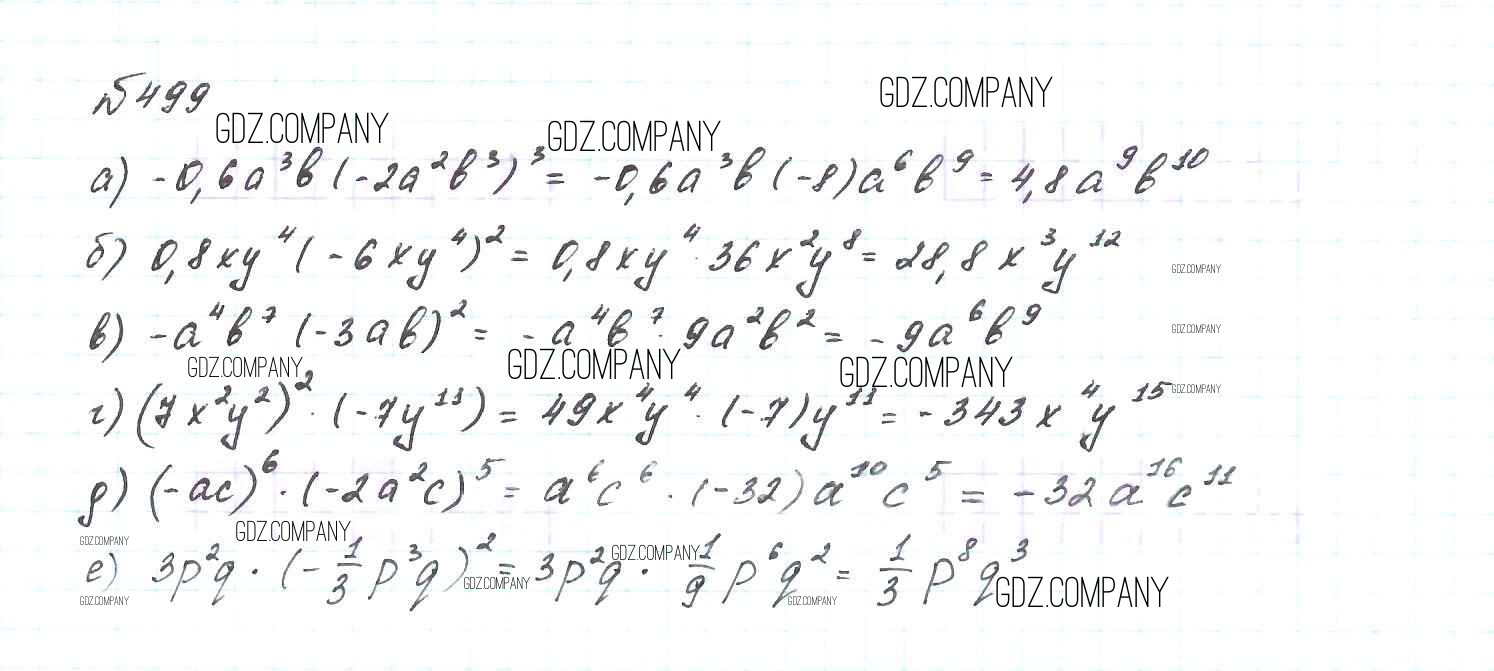 №499
GDZ.COMPANY
GDZ.COMPANY GDZ.COMPANY
а) -0,6a³b(-2a²b³)³ = -0,6a³b(-8)a⁶b⁹ = 4,8a⁹b¹⁰
б) 0,8xy⁴(-6xy⁴)² = 0,8xy⁴·36x²y⁸ = 28,8x³y¹²
GDZ.COMPANY
в) -a⁴b⁷(-3ab)² = -a⁴b⁷·9a²b² = -9a⁶b⁹
GDZ.COMPANY
GDZ.COMPANY GDZ.COMPANY GDZ.COMPANY
г) (7x²y²)²·(-7y¹¹) = 49x⁴y⁴·(-7)y¹¹ = -343x⁴y¹⁵
GDZ.COMPANY
д) (-ac)⁶·(-2a²c)⁵ = a⁶c⁶·(-32)a¹⁰c⁵ = -32a¹⁶c¹¹
GDZ.COMPANY GDZ.COMPANY GDZ.COMPANY
е) 3p²q·(-1/3p³q)² = 3p²q·1/9p⁶q² = 1/3p⁸q³
GDZ.COMPANY GDZ.COMPANY GDZ.COMPANY GDZ.COMPANY